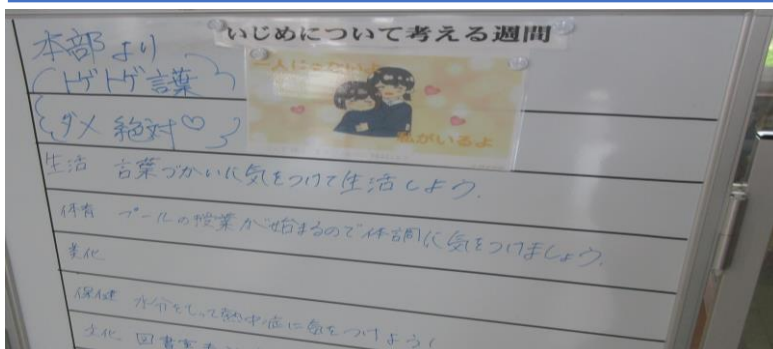 いじめについて考える週間
本部より
トゲトゲ言葉
ダメ 絶対♡
一人じゃないよ
私がいるよ
生活 言葉づかいに気をつけて生活しよう。
体育 プールの授業が始まるので体調に気をつけましょう。
美化
保健 水分をとって熱中症に気をつけよう!
文化 図書室